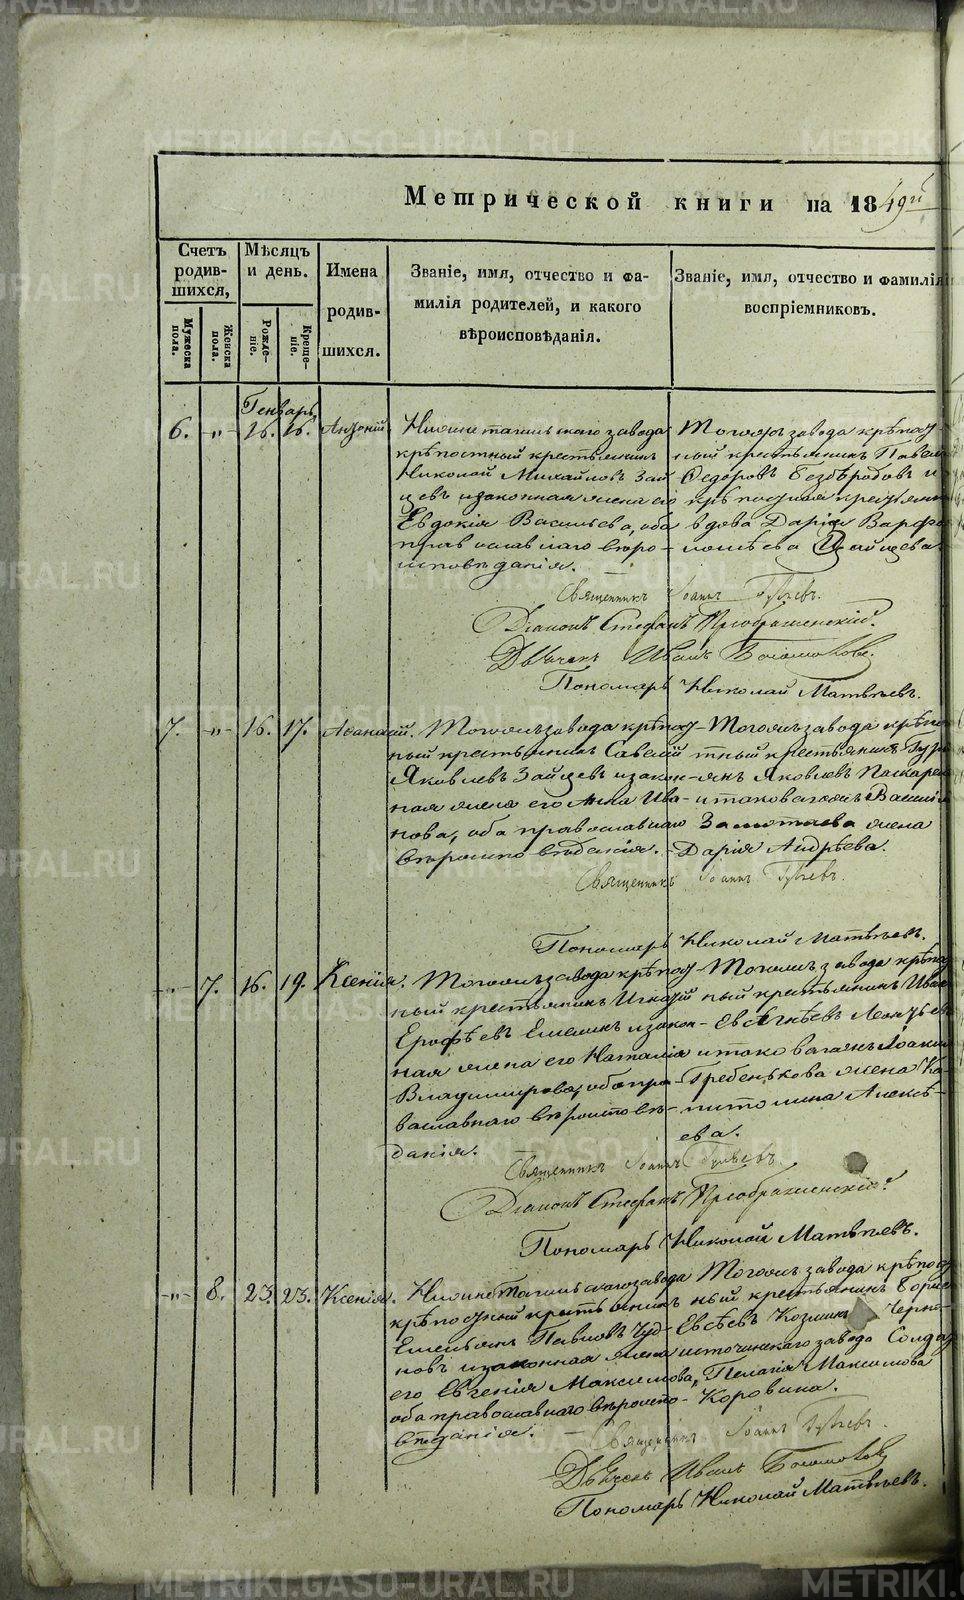 METRIKI.GASO-URAL.RU
Метрической книги на 1849й
Счетъ родив-шихся,
Мѣсяцъ и день.
Имена родив-шихся.
Званіе, имя, отчество и фа-
милія родителей, и какого
вѣроисповѣданія.
Званіе, имя, отчество и фамилія
воспріемниковъ.
Мужеска пола.
Женска пола.
Рожде-ніе.
Креще-ніе.
Генварь
6. -„- 16. 16. Антоній
Нижнетагильскаго завода
крѣпостный крестьянинъ
Николай Михайловъ Зай-
цевъ и законная жена его
Евдокія Васильева, оба
православнаго вѣро-
исповѣданія.
Тогожъ завода крѣпост-
ный крестьянинъ Павелъ
Ѳедоровъ Безбѣродовъ и
крѣпостная крестьян
вдова Дарія Варфо
ломѣева Зайцева.
Священникъ Іоаннъ
Діаконъ Стефанъ Преображенскій.
Дьячекъ Иванъ Богомоловъ
Пономарь Николай Матвѣевъ.
7. -„- 16. 17. Аѳанасій.
Тогожъ завода крѣпост-
ный крестьянинъ Савватій
Яковлевъ Зайцевъ и закон-
ная жена его Анна Ива-
нова, оба православнаго
вѣроисповѣданія.
Тогожъ завода крѣпос
тный крестьянинъ Гурі
янъ Яковлевъ
и таковагожъ Василія
жена
Дарія Андрѣева.
Священникъ Іоаннъ
Пономарь Николай Матвѣевъ.
-„- 7. 16. 19. Ксенія.
Тогожъ завода крѣпост-
ный крестьянинъ Игнатій
Ерофѣевъ Емелинъ и закон-
ная жена его Наталія
Владимірова, оба пра-
вославнаго вѣроисповѣ-
данія.
Тогожъ завода крѣпост
ный крестьянинъ Иванъ
Евсегнѣевъ Леонтьевъ
и таковагожъ Іоакима
Гребенькова жена Ка-
питолина Алексѣ-
ева.
Священникъ Іоаннъ
Діаконъ Стефанъ Преображенскій.
Пономарь Николай Матвѣевъ.
-„- 8. 23. 23. Ксенія.
Нижнетагильскаго завода
крѣпостный крестьянинъ
Емельянъ Павловъ Чуд-
новъ и законная жена
его Евгенія Максимова,
оба православнаго вѣроиспо-
вѣданія.
Тогожъ завода крѣпост
ный крестьянинъ Борисъ
Евсѣевъ Козминъ Черно-
источинскаго завода Солдат
Пелагія Максимова
Коровина.
Священникъ Іоаннъ
Дьячекъ Иванъ Богомоловъ
Пономарь Николай Матвѣевъ.